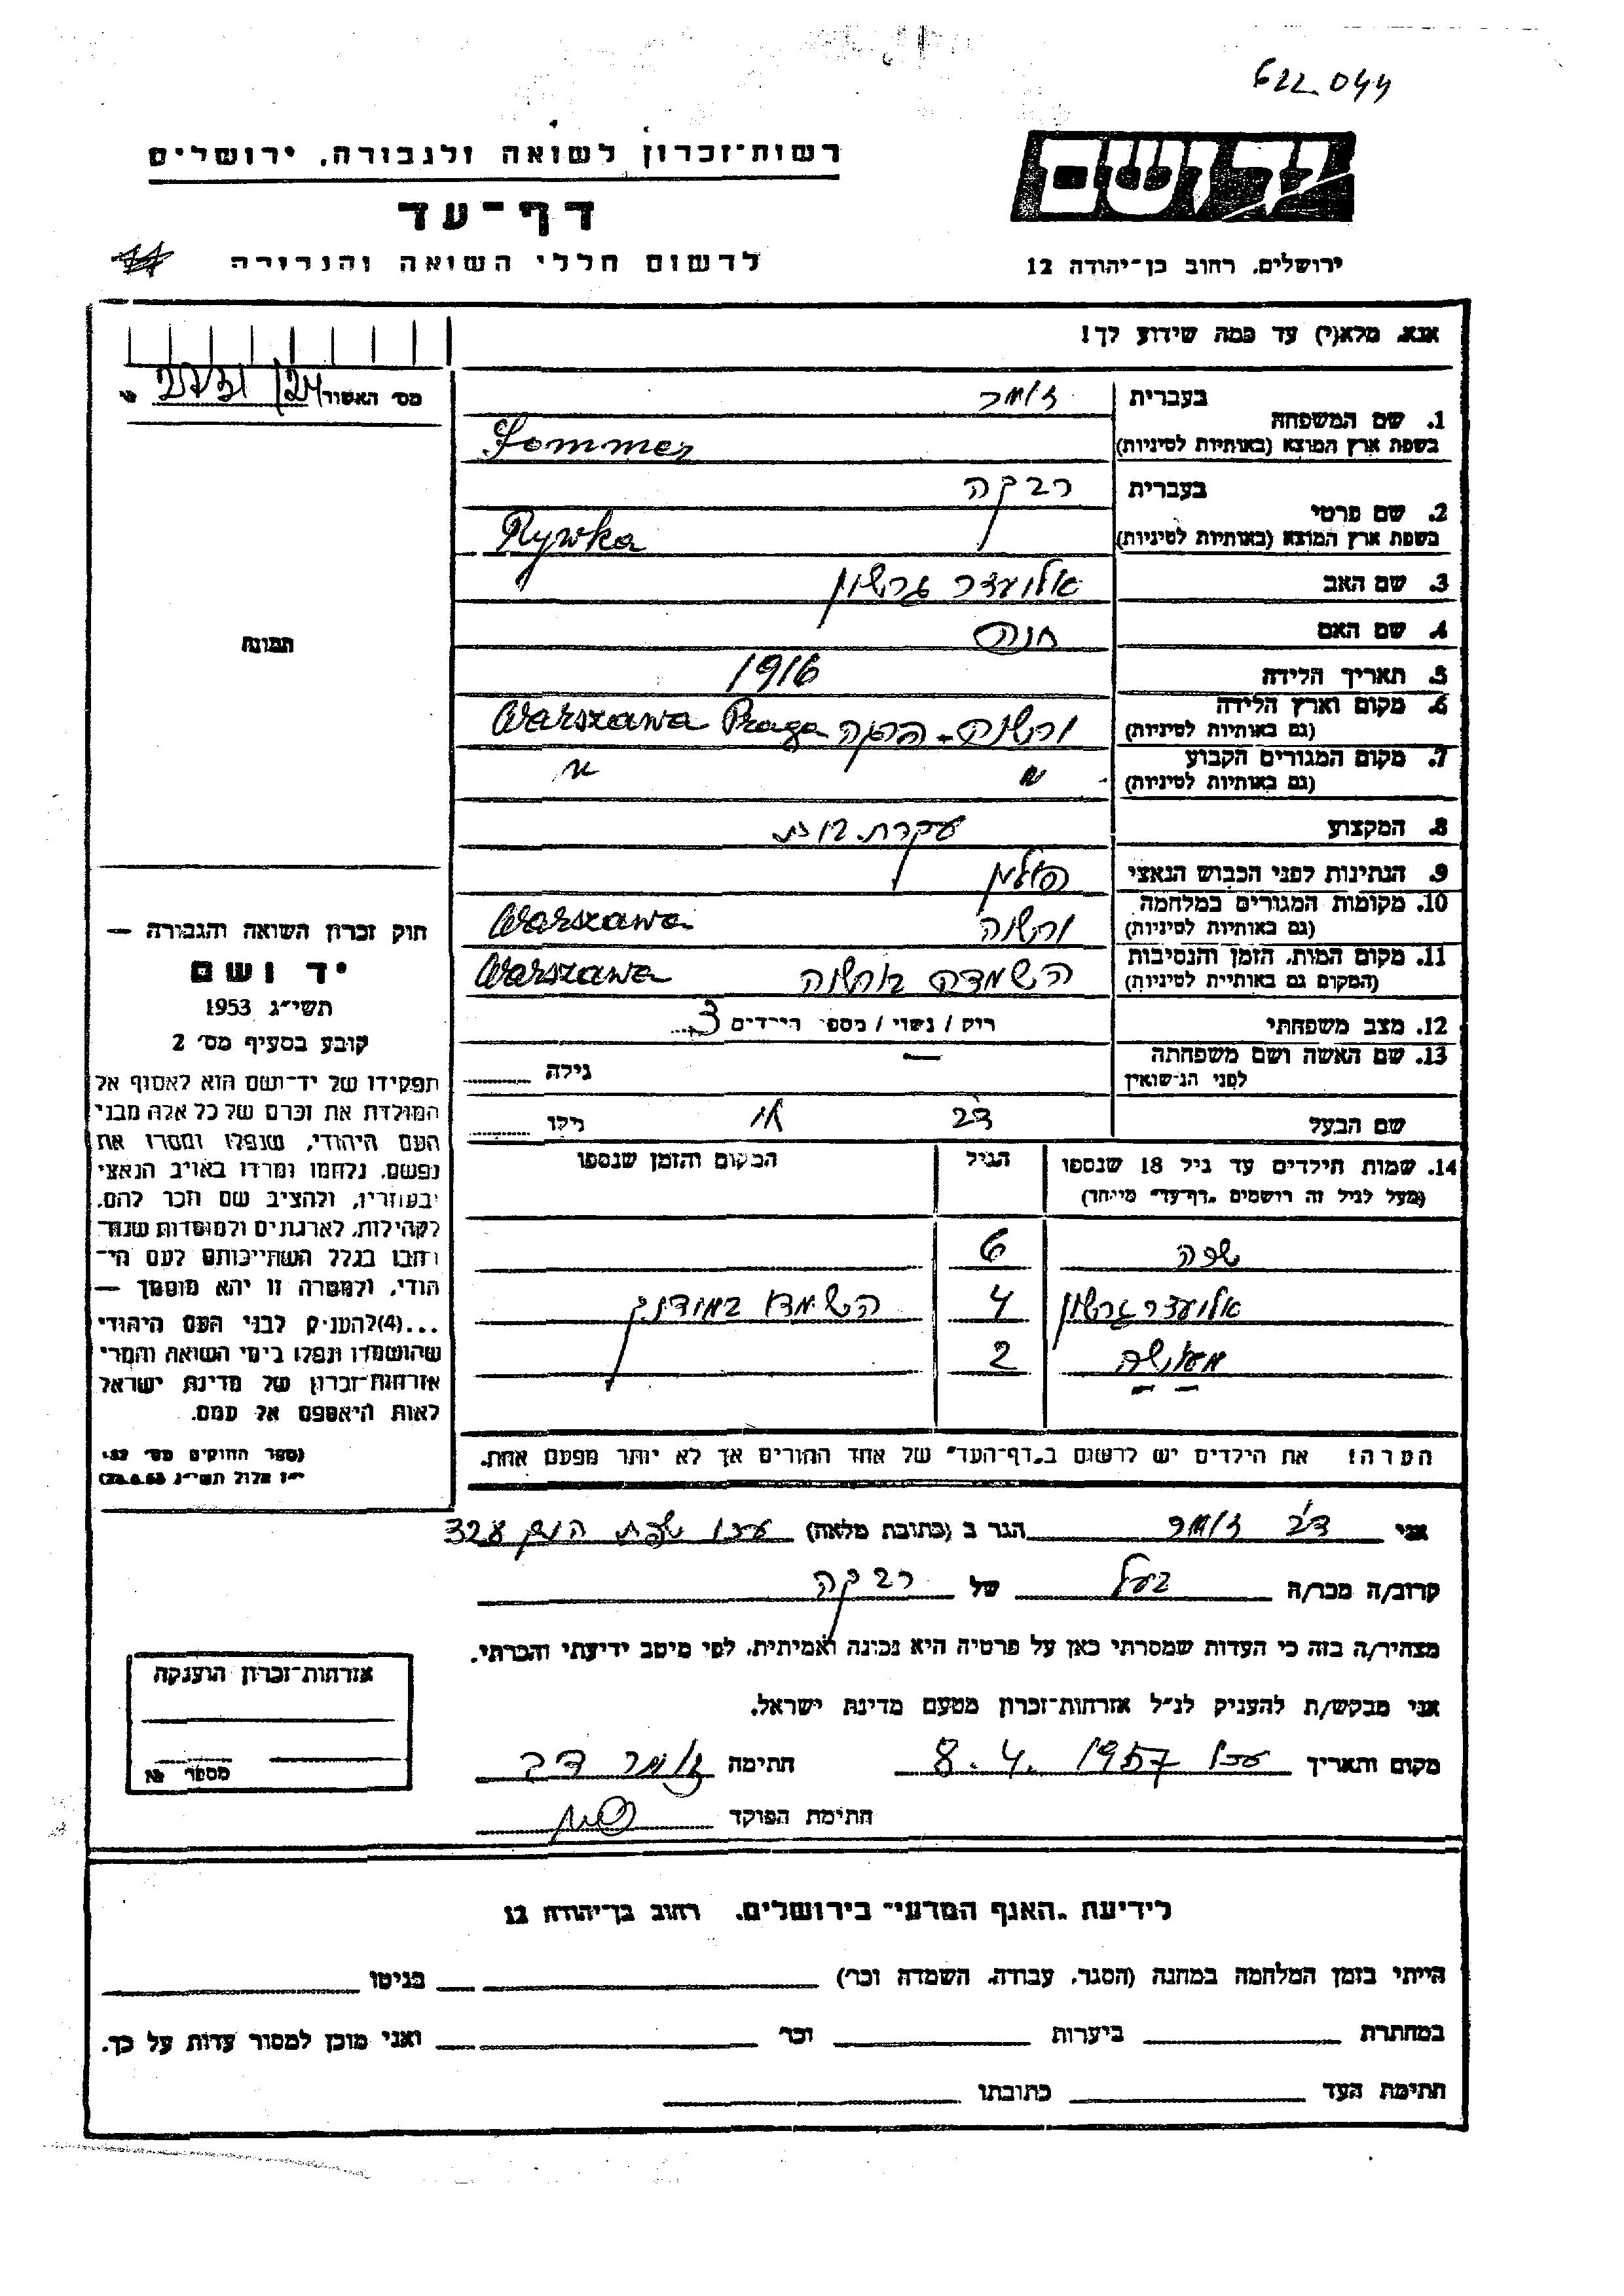 622 044
יד ושם
רשות־זכרון לשואה ולגבורה, ירושלים
דף־עד
לרשום חללי השואה והגבורה
ירושלים, רחוב בן־יהודה 12
אנא, מלא(י) עד כמה שידוע לך!
מס׳ האשור
1. שם המשפחה
בעברית זומר
בשפת ארץ המוצא (באותיות לטיניות) Sommer
2. שם פרטי
בעברית רבקה
בשפת ארץ המוצא (באותיות לטיניות) Rywka
3. שם האב אלעזר גרשון
4. שם האם חנה
5. תאריך הלידה 1916
6. מקום וארץ הלידה
(גם באותיות לטיניות) ורשה - פרגה Warszawa Praga
7. מקום המגורים הקבוע
(גם באותיות לטיניות) " "
8. המקצוע עקרת בית
9. הנתינות לפני הכבוש הנאצי פולין
10. מקומות המגורים במלחמה
(גם באותיות לטיניות) ורשה Warszawa
11. מקום המות, הזמן והנסיבות
(המקום גם באותיות לטיניות) השמדה בורשה Warszawa
12. מצב משפחתי רוק / נשוי / מספר הילדים 3
13. שם האשה ושם משפחתה
לפני הנישואין — גילה
שם הבעל דב גילו
14. שמות הילדים עד גיל 18 שנספו הגיל המקום והזמן שנספו
(מעל לגיל זה רושמים "דף־עד" מיוחד)
שפה 6
אלעזר גרשון 4
2
הערה! את הילדים יש לרשום ב"דף־העד" של אחד ההורים אך לא יותר מפעם אחת.
תמונה
חוק זכרון השואה והגבורה —
יד ושם
תשי״ג 1953
קובע בסעיף מס׳ 2
תפקידו של יד־ושם הוא לאסוף אל
המולדת את זכרם של כל אלה מבני
העם היהודי, שנפלו ומסרו את
נפשם, נלחמו ומרדו באויב הנאצי
ובעוזריו, ולהציב שם וזכר להם,
לקהילות, לארגונים ולמוסדות שנח־
רבו בגלל השתייכותם לעם הי־
הודי, ולמטרה זו יהא מוסמך —
...(4)להעניק לבני העם היהודי
שהושמדו ונפלו בימי השואה והמרי
אזרחות־זכרון של מדינת ישראל
לאות היאספם אל עמם.
(ספר החוקים מס׳ 132,
י״ז אלול תשי״ג 28.8.53)
אני דב זומר הגר ב (כתובת מלאה) עכו שפת הים
קרוב/ה מכר/ה בעל של רבקה
מצהיר/ה בזה כי העדות שמסרתי כאן על פרטיה היא נכונה ואמיתית, לפי מיטב ידיעתי והכרתי.
אני מבקש/ת להעניק לנ״ל אזרחות־זכרון מטעם מדינת ישראל.
מקום ותאריך עכו 8.4.1957 חתימה זומר דב
חתימת הפוקד
אזרחות־זכרון הוענקה
מספר №
לידיעת "האגף המדעי" בירושלים, רחוב בן־יהודה 12
הייתי בזמן המלחמה במחנה (הסגר, עבודה, השמדה וכו׳) בגיטו
במחתרת ביערות וכו׳ ואני מוכן למסור עדות על כך.
חתימת העד כתובתו